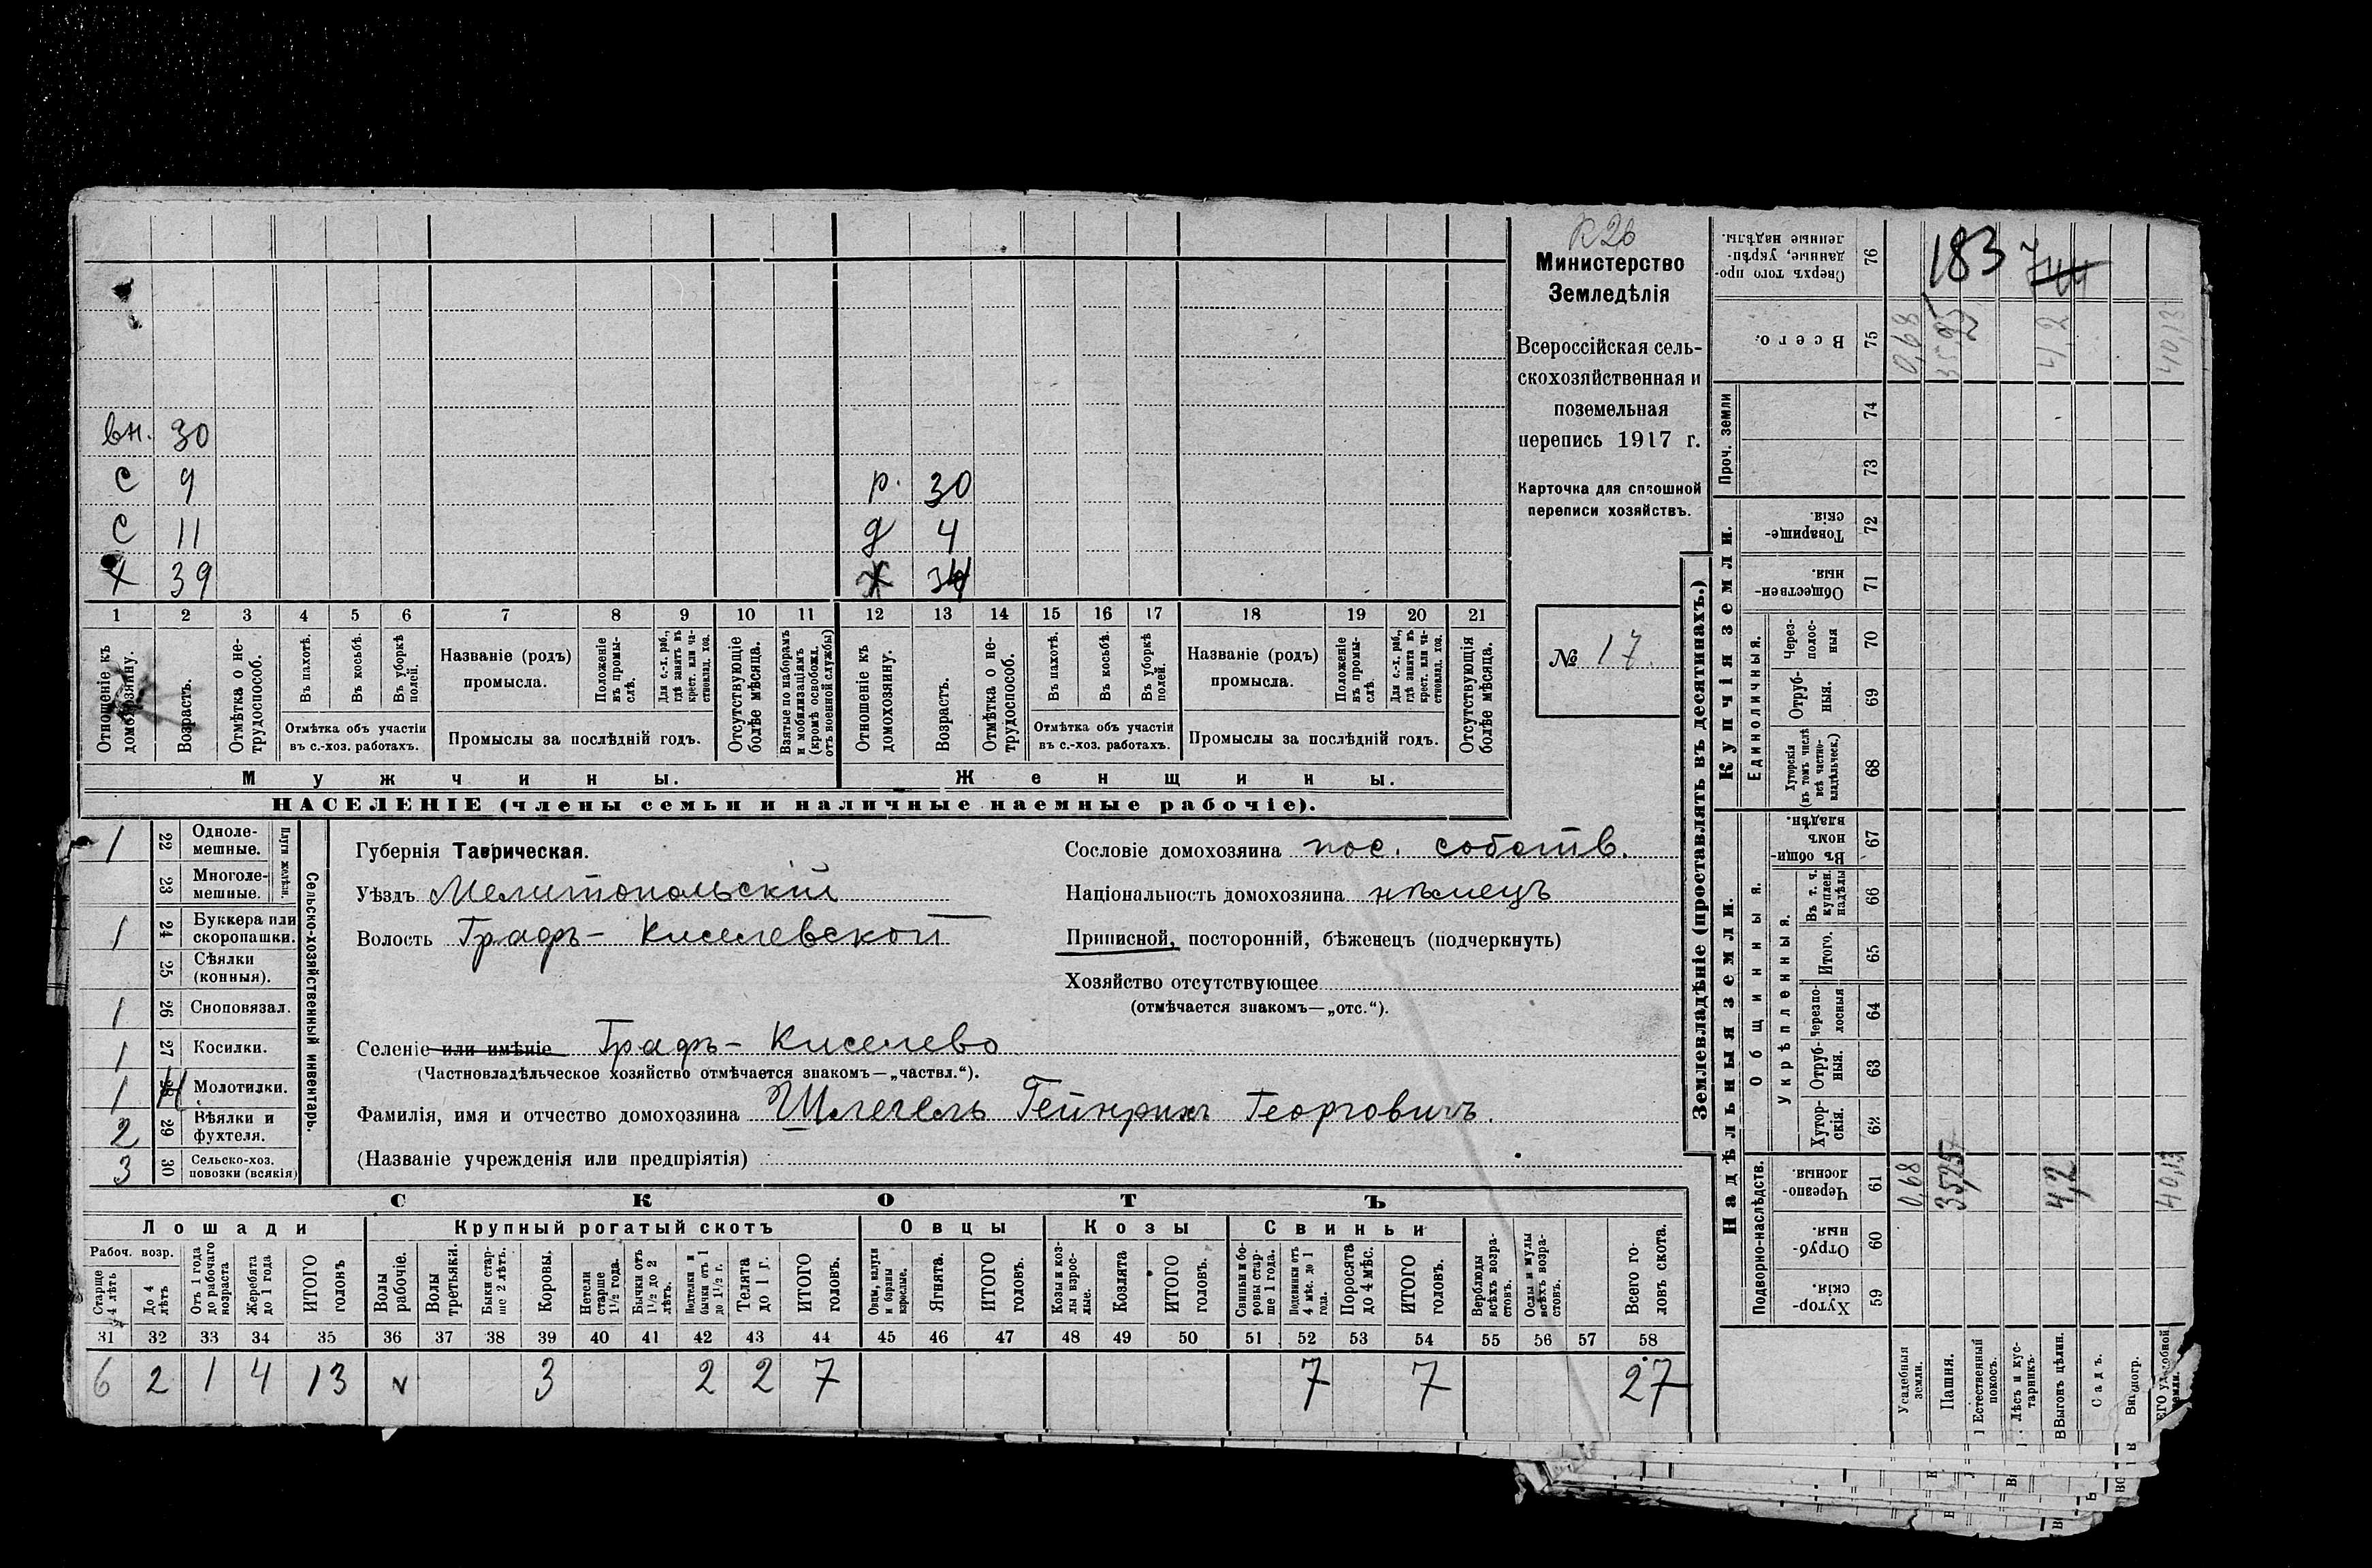 R 26
Министерство
Земледѣлія
Всероссійская сель-
скохозяйственная и
поземельная
перепись 1917 г.
Карточка для сплошной
переписи хозяйствъ.
№ 17.
вн. 30
с 9
р. 30
с 11
д 4
х 39
ж 34
1 2 3 4 5 6 7 8 9 10 11 12 13 14 15 16 17 18 19 20 21
Отношеніе къ домохозяину.
Возрастъ.
Отмѣтка о не-трудоспособ.
Въ пахотѣ.
Въ косьбѣ.
Въ уборкѣ полей.
Отмѣтка объ участіи
въ с.-хоз. работахъ.
Названіе (родъ)
промысла.
Положеніе въ промы-слѣ.
Для с.-х. раб., гдѣ занятъ въ крест. или ча-стновлад. хоз.
Промыслы за послѣдній годъ.
Отсутствующіе болѣе мѣсяца.
Взятые по наборамъ и мобилизаціямъ (кромѣ освобожд. отъ военной службы)
Отношеніе къ домохозяину.
Возрастъ.
Отмѣтка о не-трудоспособ.
Въ пахотѣ.
Въ косьбѣ.
Въ уборкѣ полей.
Отмѣтка объ участіи
въ с.-хоз. работахъ.
Названіе (родъ)
промысла.
Положеніе въ промы-слѣ.
Для с.-х. раб., гдѣ занята въ крест. или ча-стновлад. хоз.
Промыслы за послѣдній годъ.
Отсутствующія болѣе мѣсяца.
Мужчины. Женщины.
НАСЕЛЕНІЕ (члены семьи и наличные наемные рабочіе).
Сельско-хозяйственный инвентарь.
1 22 Одноле-мешные.
23 Многоле-мешные.
1 24 Буккера или скоропашки.
25 Сѣялки (конныя).
1 26 Сноповязал.
1 27 Косилки.
1 Молотилки.
2 29 Вѣялки и фухтеля.
3 30 Сельско-хоз. повозки (всякія)
Губернія Таврическая.
Уѣздъ Мелитопольскій
Волость Графъ-Киселевской
Селеніе или имѣніе Графъ-Киселево
(Частновладѣльческое хозяйство отмѣчается знакомъ—„частвл.“).
Фамилія, имя и отчество домохозяина Шлегель Гейнрихъ Георговичъ.
(Названіе учрежденія или предпріятія)
Сословіе домохозяина пос. собств.
Національность домохозяина нѣмецъ
Приписной, посторонній, бѣженецъ (подчеркнуть)
Хозяйство отсутствующее
(отмѣчается знакомъ—„отс.“).
СКОТЪ
Лошади Крупный рогатый скотъ Овцы Козы Свиньи
Рабоч. возр.
Старше 4 лѣтъ
До 4 лѣтъ
Отъ 1 года до рабочаго возраста
Жеребята до 1 года
ИТОГО головъ
Волы рабочіе.
Волы третьяки.
Быки стар-ше 2 лѣтъ.
Коровы.
Нетели старше 1½ года.
Бычки отъ 1½ до 2 лѣтъ.
Подтелки и бычки отъ 1 до 1½ г.
Телята до 1 г.
ИТОГО головъ.
Овцы, валухи и бараны взрослые.
Ягнята.
ИТОГО головъ.
Козы и коз-лы взрос-лые.
Козлята
ИТОГО головъ.
Свиньи и бо-ровы стар-ше 1 года.
Подсвинки отъ 4 мѣс. до 1 года.
Поросята до 4 мѣс.
ИТОГО головъ.
Верблюды всѣхъ возра-стовъ.
Ослы и мулы всѣхъ возра-стовъ.
Всего го-ловъ скота.
31 32 33 34 35 36 37 38 39 40 41 42 43 44 45 46 47 48 49 50 51 52 53 54 55 56 57 58
6 2 1 4 13 v 3 2 2 7 7 7 27
Землевладѣніе (проставлять въ десятинахъ.)
Надѣльныя земли.
Купчія земли.
Проч. земли
Подворно-наслѣдств.
Общинныя.
Укрѣпленныя.
Единоличныя.
Сверхъ того про-данные, укрѣп-ленные надѣлы. 76 183
Всего. 75 0,68 4,2 40,13
74
73
Товарище-скія. 72
Обществен-ныя. 71
Через-полос-ныя 70
Отруб-ныя. 69
Хуторскія (въ томъ числѣ всѣ частно-владѣльческ.) 68
Въ общи-номъ владѣн. 67
Въ т. ч. куплен. надѣлы 66
Итого. 65
Черезпо-лосныя 64
Отруб-ныя. 63
Хутор-скія. 62
Черезпо-лосныя. 61 0,68 35,25 4,2 40,13
Отруб-ныя. 60
Хутор-скія. 59
Усадебныя земли.
Пашня.
Естественный покосъ.
Лѣсъ и кус-тарникъ.
Выгонъ цѣлин.
Садъ.